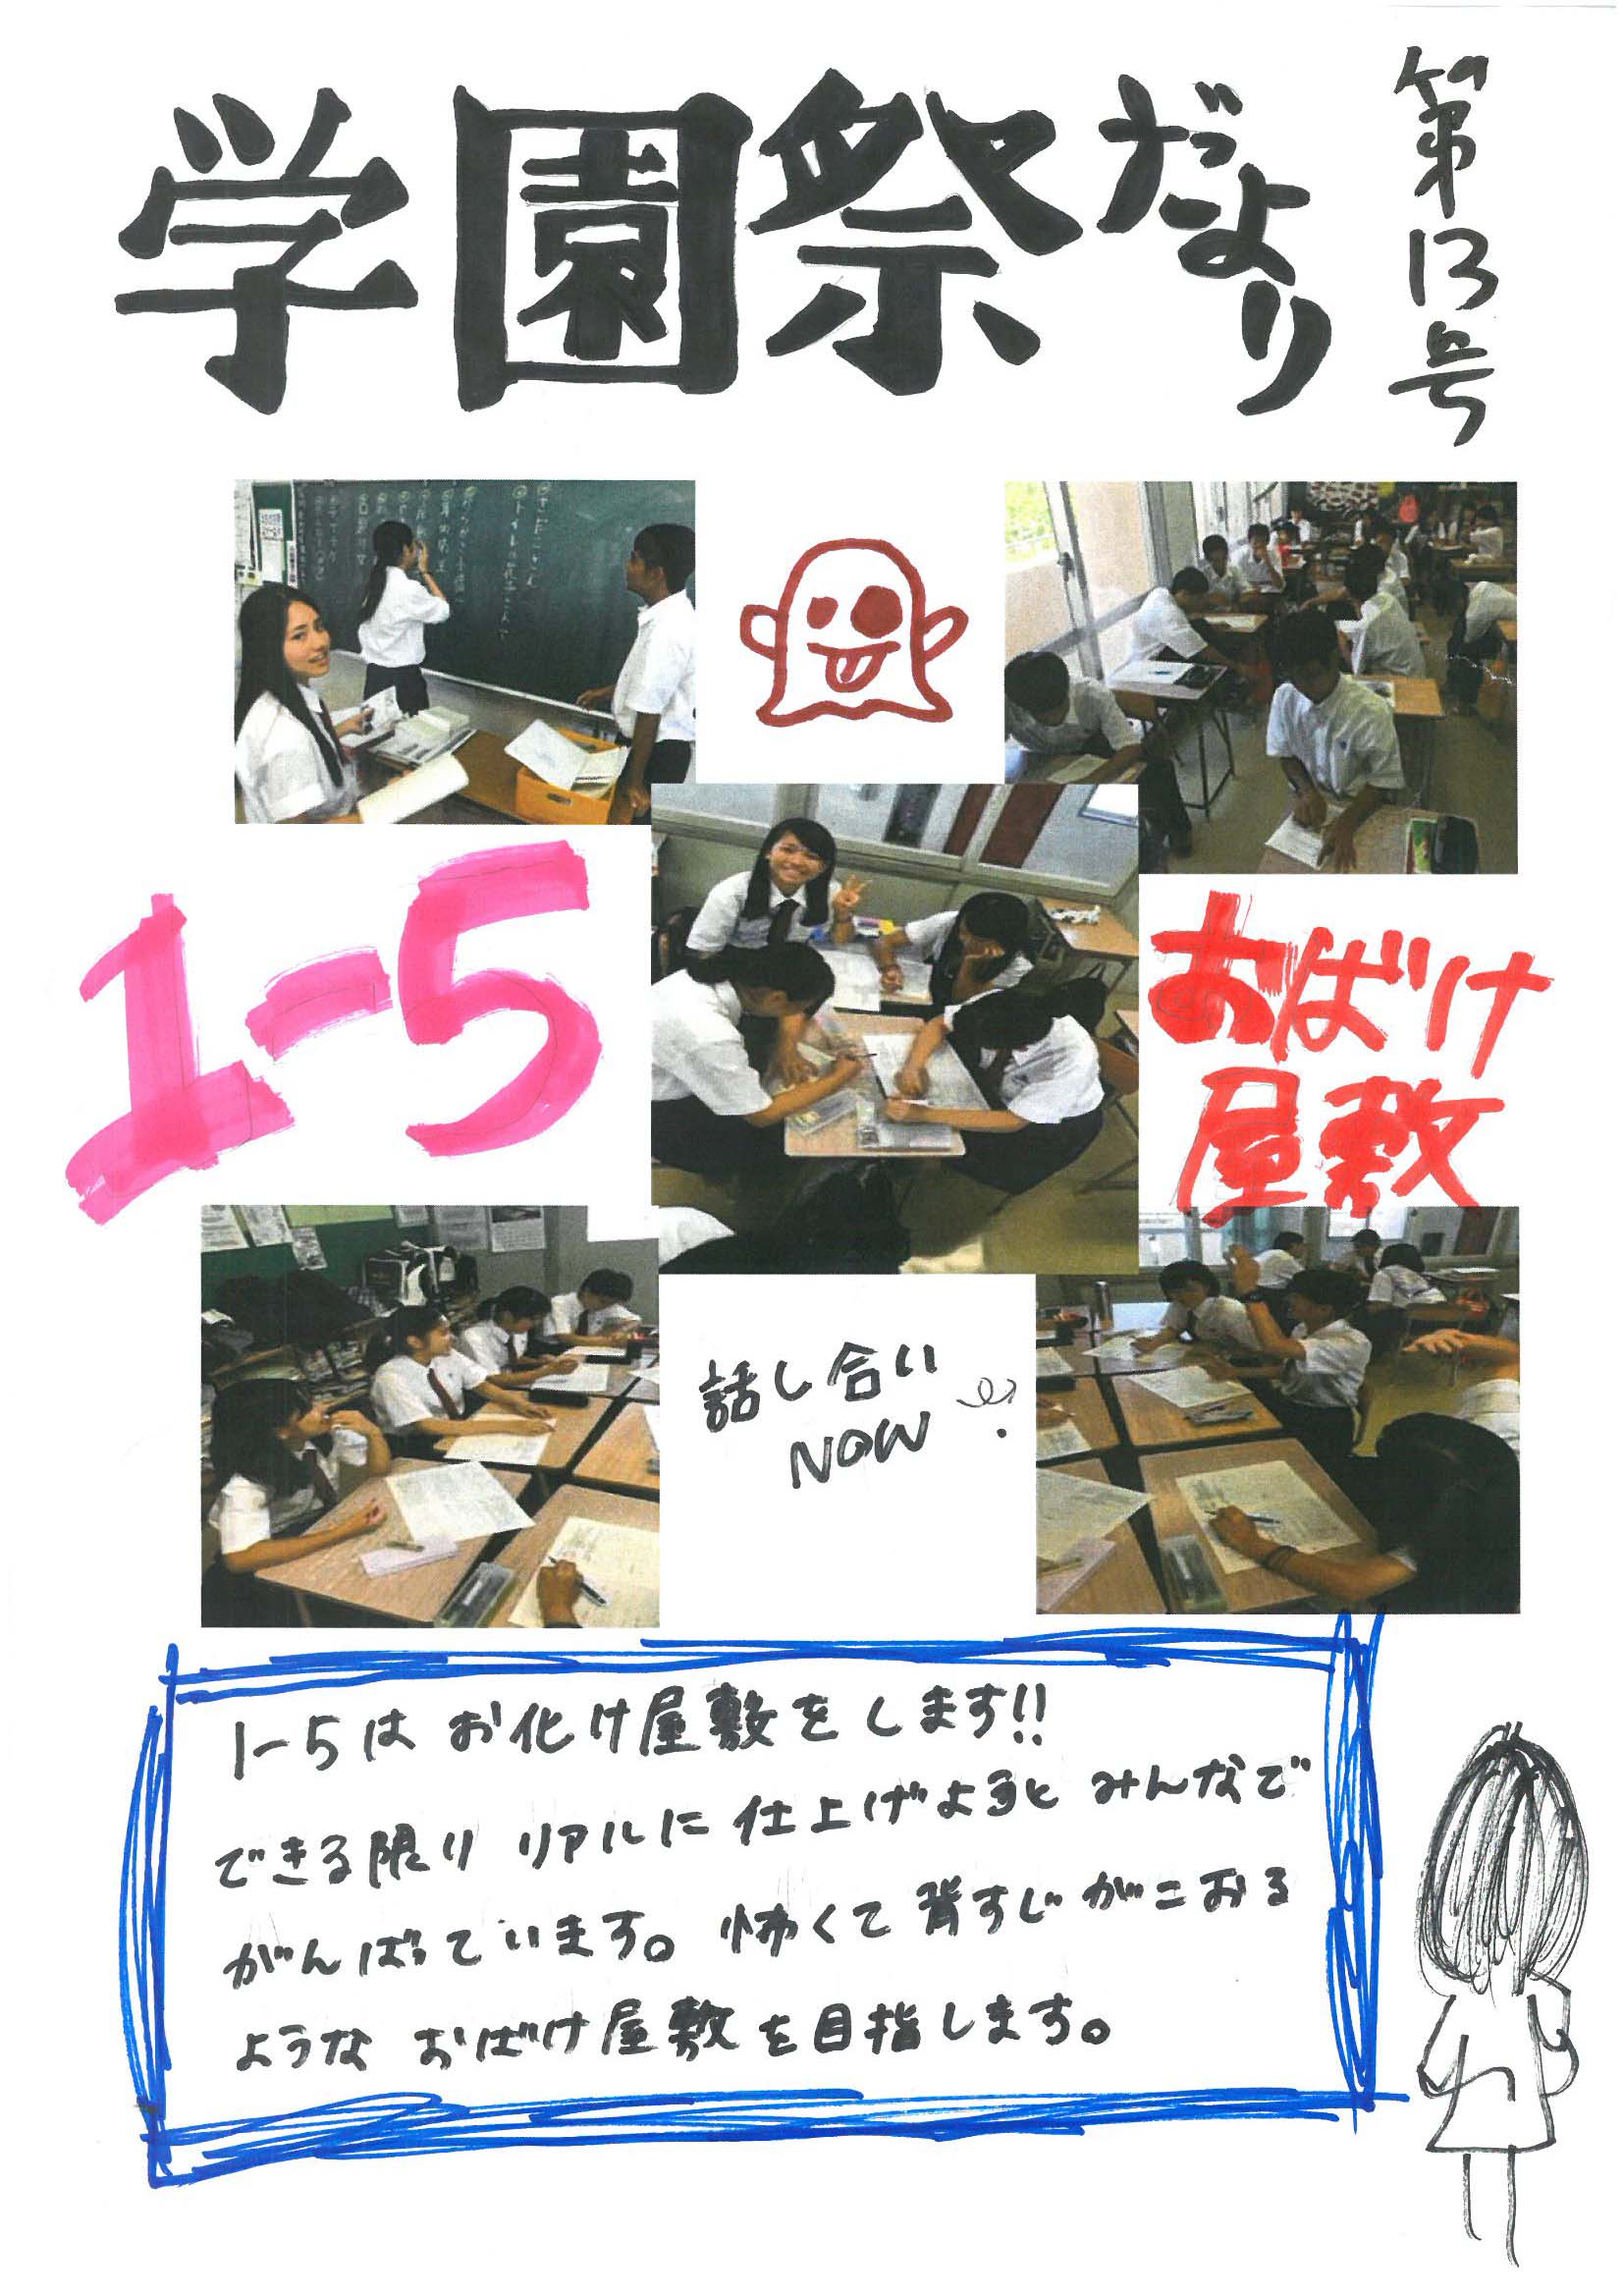 学園祭だより
第13号
1-5
おばけ
屋敷
話し合い
NOW
1-5は お化け屋敷をします!!
できる限り リアルに 仕上げようと みんなで
がんばっています。怖くて 背すじがこおる
ような おばけ屋敷を目指します。